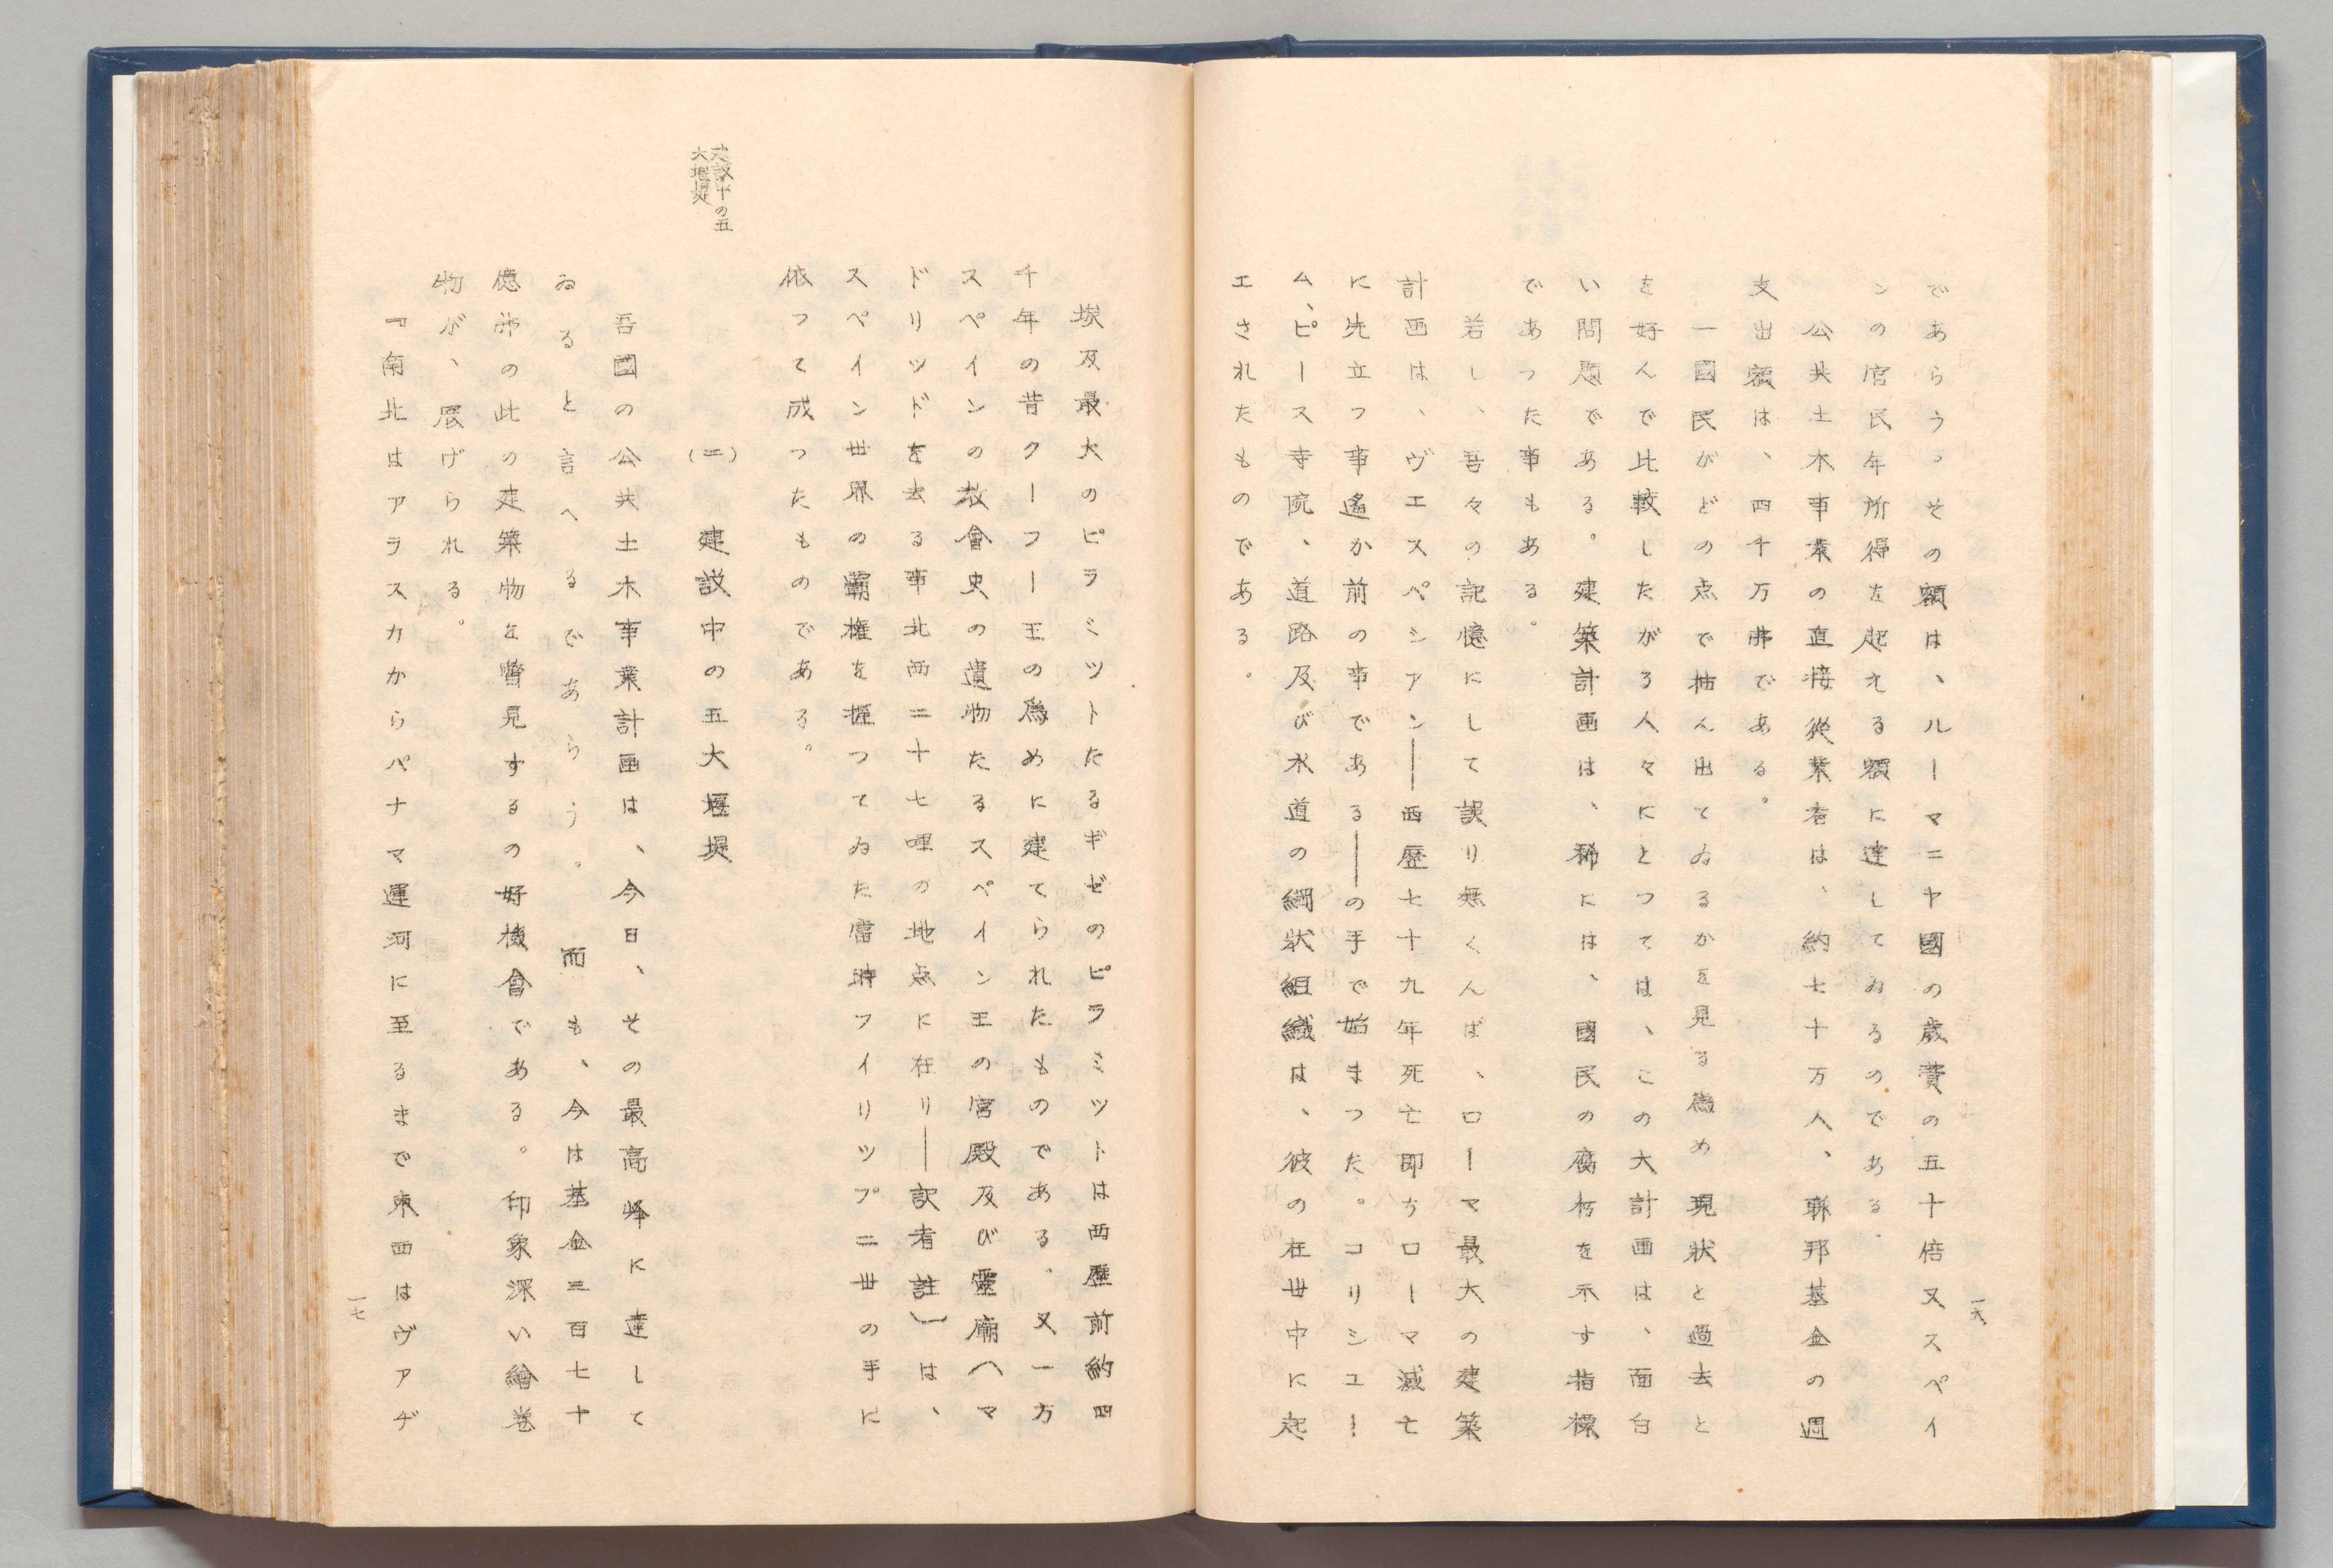 であらう。その額は、ルーマニヤ國の歳費の五十倍又スペイ
ンの官民年所得を起える額に達してゐるのである.
公共土木事業の直接從業者は、約七十万人、聯邦基金の週
支出額は、四千万弗である。
一國民がどの点で抽ん出てゐるかを見る為め現状と過去と
を好んで比較したがる人々にとつては、この大計画は、面白
い問題である。建築計画は、稀には、國民の腐朽を示す指標
であつた事もある。
若し、吾々の記憶にして誤り無くんば、ローマ最大の建築
計画は、ヴエスペシアン――西歴七十九年死亡即ちローマ滅亡
に先立つ事遙か前の事である――の手で始まつた。コリシユー
ム、ピース寺院、道路及び水道の綱状組織は、彼の在世中に起
エされたものである。
一六
埃及最大のピラミツトたるギゼのピラミツトは西歴前約四
千年の昔クーフー王の為めに建てられたものである、又一方
スペインの教會史の遺物たるスペイン王の宮殿及び靈廟(マ
ドリツドを去る事北西二十七哩の地点に在り―訳者註)は、
スペイン世界の霸権を握つてゐた當時フイリツプ二世の手に
依つて成つたものである。
建設中の五
大堰堤
(二) 建設中の五大堰堤
吾國の公共土木事業計画は、今日、その最高峰に達して
ゐると言へるであらう。而も、今は基金三百七十
億弗の此の建築物を瞥見するの好機會である。印象深い繪巻
物が、展げられる。
『南北はアラスカからパナマ運河に至るまで東西はヴアヂ
一七